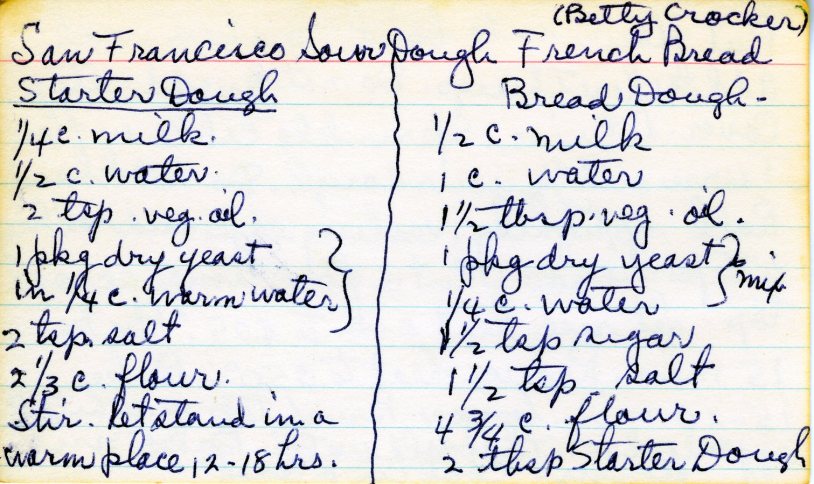 (Betty Crocker)
San Francisco Sour Dough French Bread
Starter Dough
1/4 c. milk.
1/2 c. water.
2 tsp. veg. oil.
1 pkg dry yeast
in 1/4 c. warm water
2 tsp. salt
2 1/3 c. flour.
Stir. Let stand in a
warm place, 12-18 hrs.
Bread Dough-
1/2 c. milk
1 c. water
1 1/2 tbsp. veg. oil.
1 pkg dry yeast
1/4 c. water
mix
1 1/2 tsp sugar
1 1/2 tsp salt
4 3/4 c. flour.
2 tbsp Starter Dough